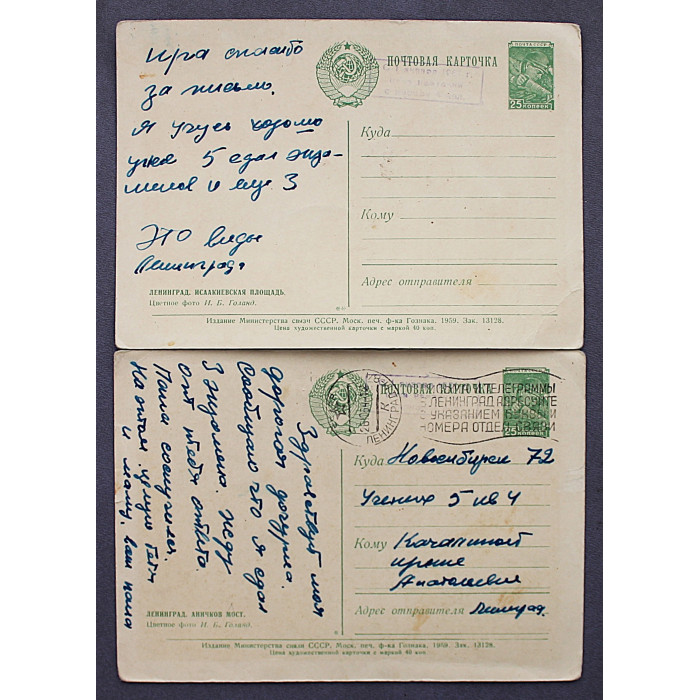 Ира спасибо
за письмо.
Я учусь хорошо
уже 5 сдал экза-
менов и еще 3
Это виды
Ленинграда
ПОЧТОВАЯ КАРТОЧКА
ПОЧТА СССР
25 КОПЕЕК
Куда
Кому
Адрес отправителя
ЛЕНИНГРАД. ИСААКИЕВСКАЯ ПЛОЩАДЬ.
Цветное фото И. Б. Голанд.
Издание Министерства связи СССР. Моск. печ. ф-ка Гознака. 1959. Зак. 13128.
Цена художественной карточки с маркой 40 коп.
Здравствуй моя
дорогая дочурка.
Сообщаю что я сдал
3 экзамена. Жду
от тебя ответа.
Папа соскучился.
На этом целую тебя
и маму. ваш папа
ПОЧТОВАЯ КАРТОЧКА
ЛЕНИНГРАД
ПИСЬМА И ТЕЛЕГРАММЫ
В ЛЕНИНГРАД АДРЕСУЙТЕ
С УКАЗАНИЕМ
НОМЕРА ОТДЕЛ. СВЯЗИ
25 КОПЕЕК
Куда Новосибирск 72
Учених 5 кв 4
Кому
Ирине
Анатольевне
Адрес отправителя Ленинград.
ЛЕНИНГРАД. АНИЧКОВ МОСТ.
Цветное фото И. Б. Голанд.
Издание Министерства связи СССР. Моск. печ. ф-ка Гознака. 1959. Зак. 13128.
Цена художественной карточки с маркой 40 коп.